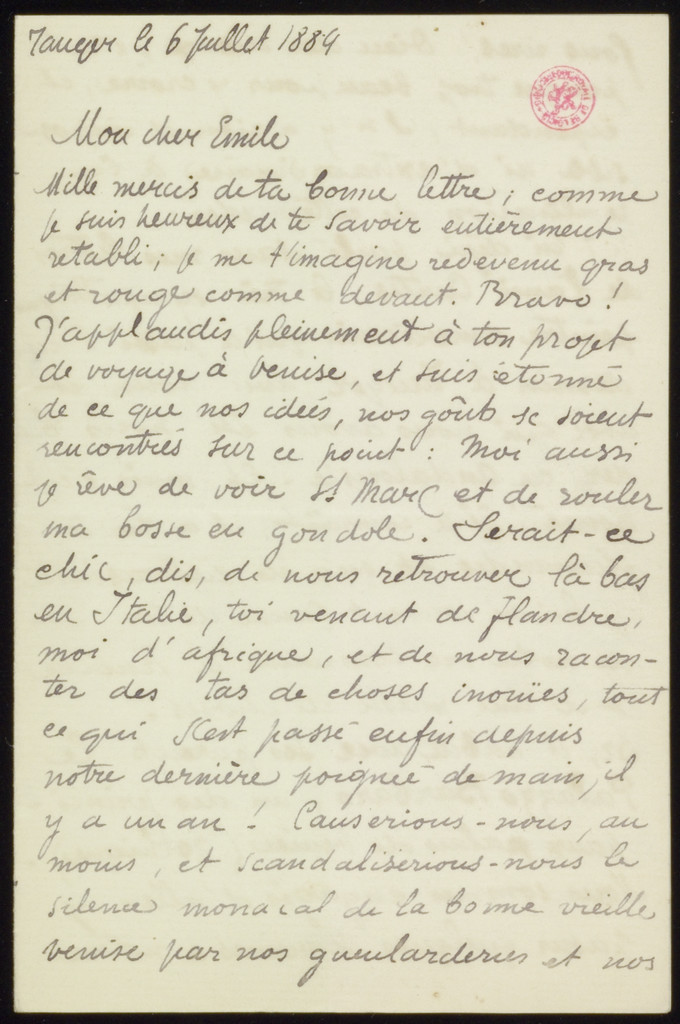 Tanger le 6 Juillet 1884
Mon cher Emile
Mille mercis de ta bonne lettre ; comme
je suis heureux de te savoir entièrement
retabli ; je me t'imagine redevenu gras
et rouge comme devant. Bravo !
J'applaudis pleinement à ton projet
de voyage à Venise, et suis étonné
de ce que nos idées, nos goûts se soient
rencontrés sur ce point : Moi aussi
je rêve de voir St Marc et de rouler
ma bosse en gondole. Serait-ce
chic, dis, de nous retrouver là bas
en Italie, toi venant de Flandre,
moi d'afrique, et de nous racon-
ter des tas de choses inouïes, tout
ce qui s'est passé enfin depuis
notre dernière poignée de main, il
y a un an ! Causerions-nous, au
moins, et scandaliserions-nous le
silence monacal de la bonne vieille
Venise par nos gueularderies et nos